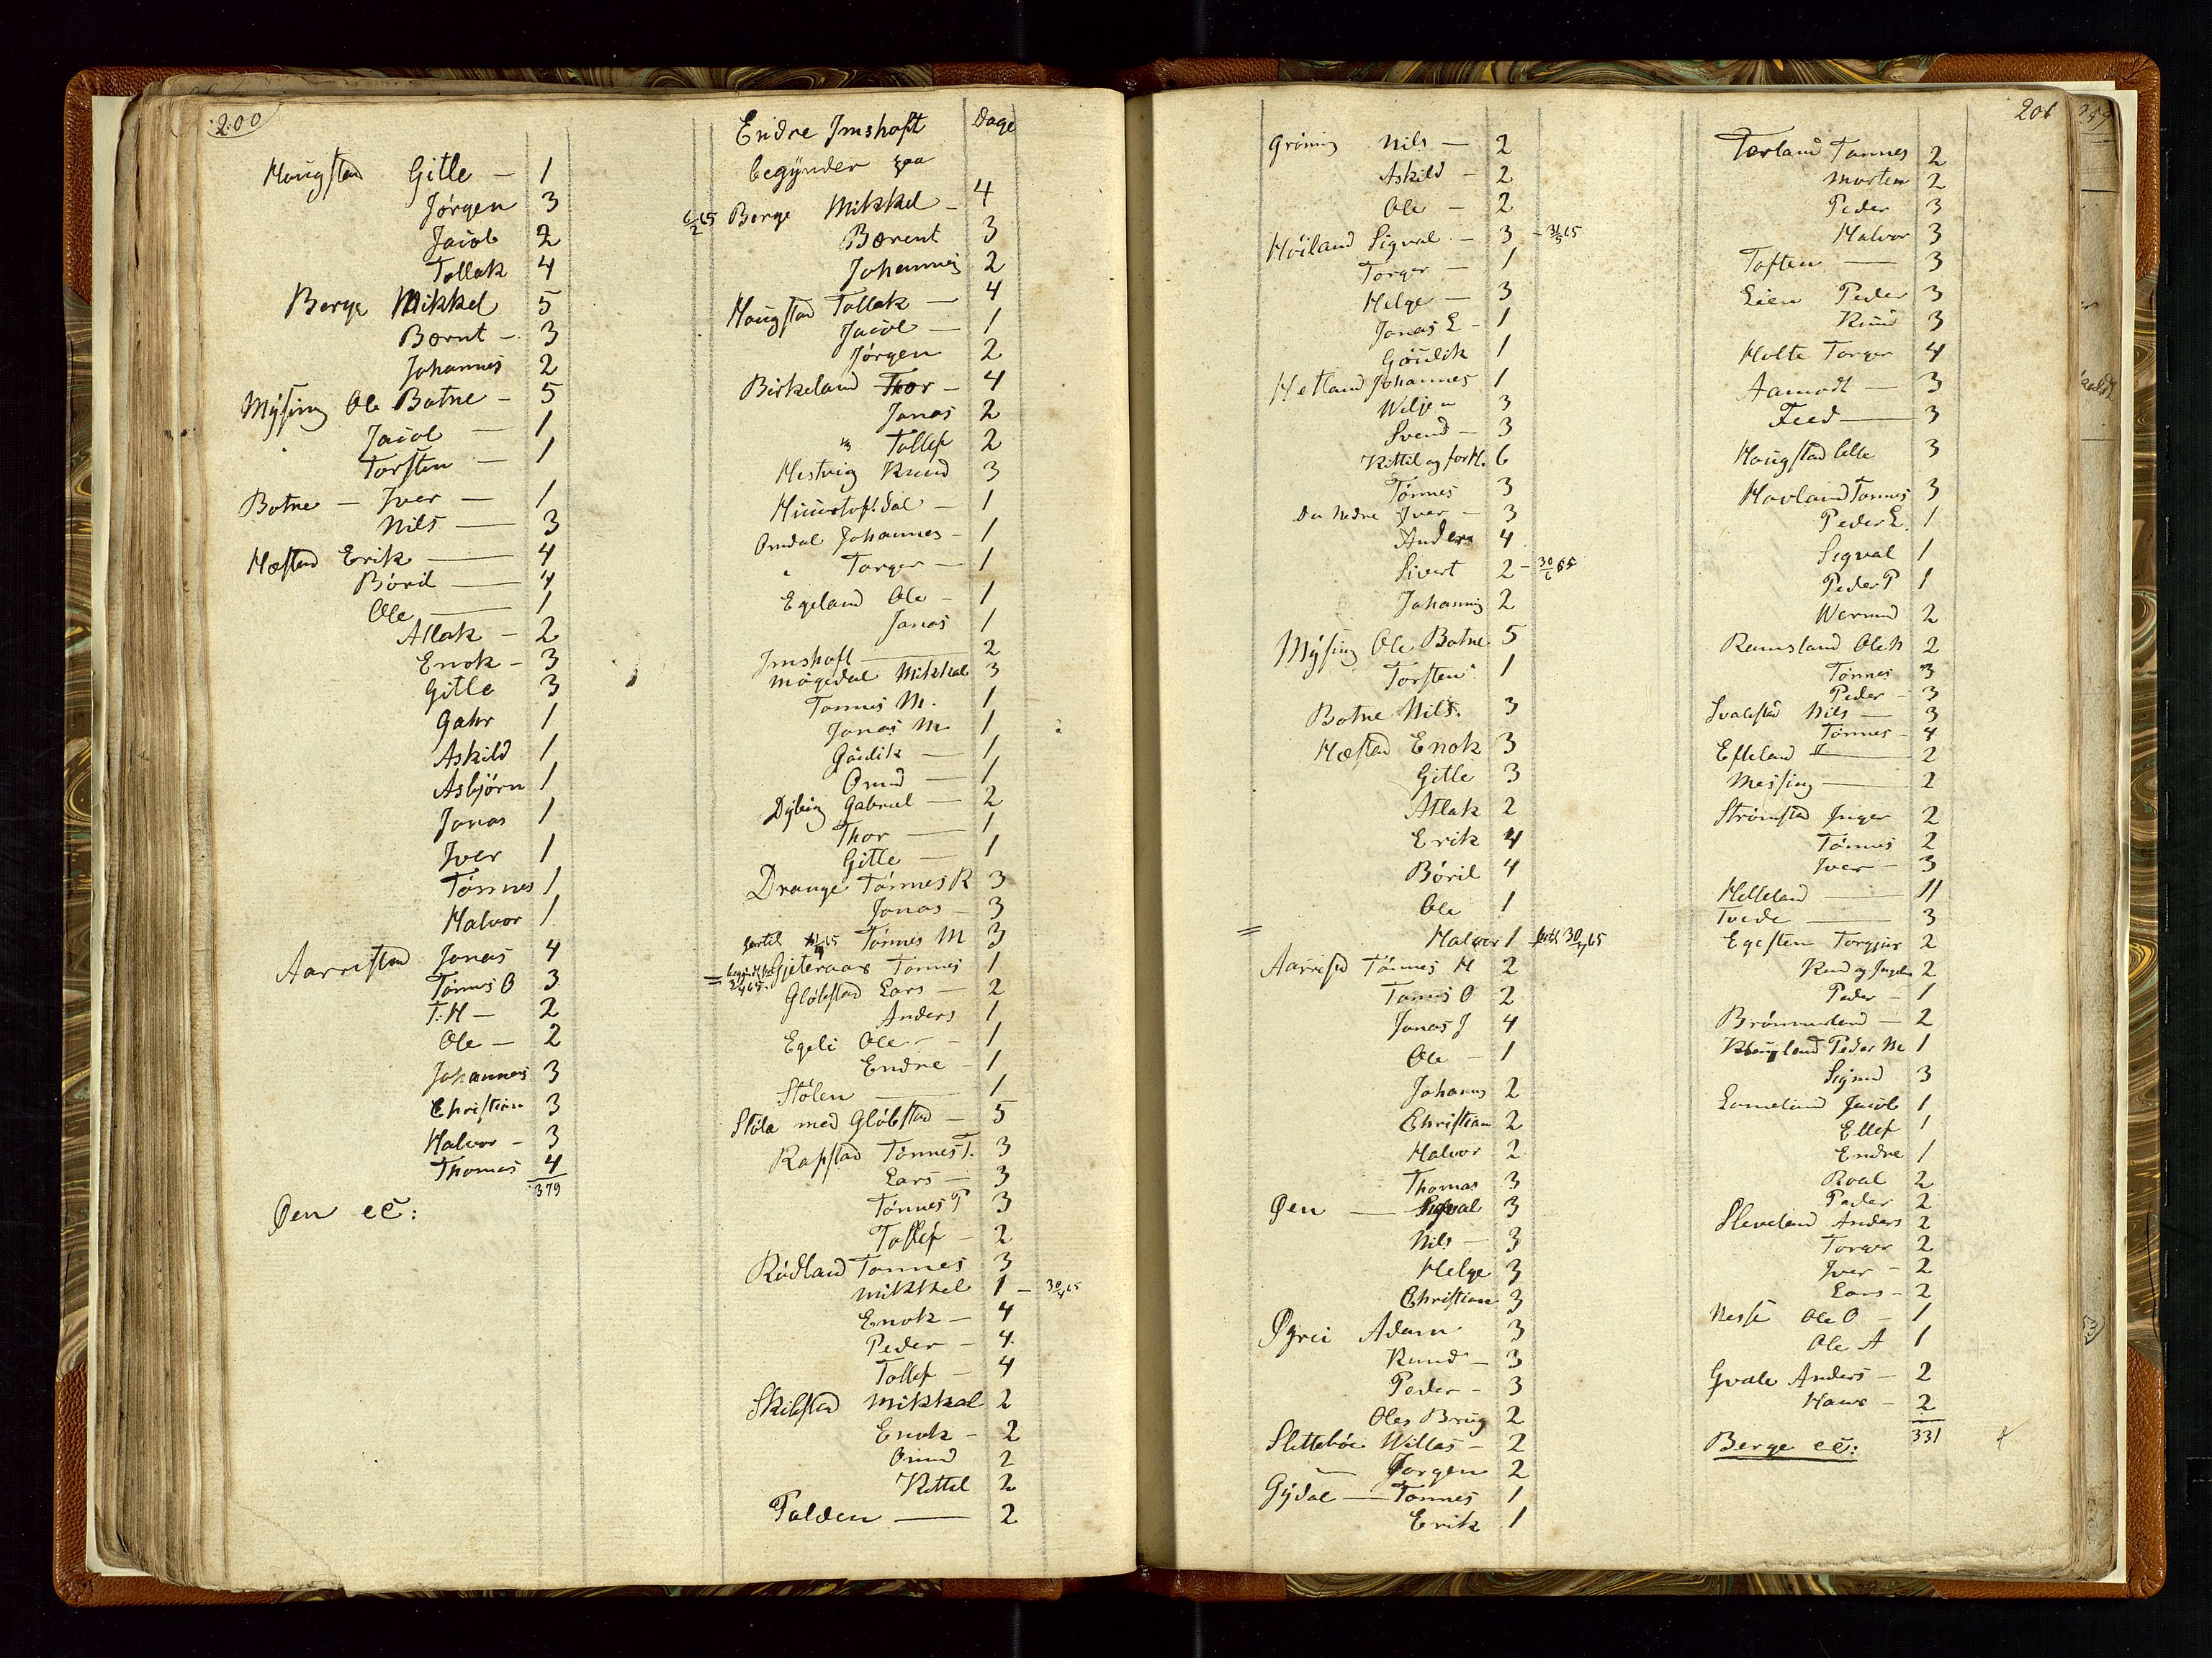 200
Haugstad Gitle — 1
Jørgen 3
Jacob 2
Tollak 4
Berge Mikkel 5
Bernt — 3
Johannes 2
Mysing Ole Botne — 5
Jacob — 1
Torsten — 1
Botne — Iver — 1
Nils — 3
Hæstad Erik — 4
Bóril — 4
Ole — 1
Atlak — 2
Enok — 3
Gitle 3
Gahr 1
Askild 1
Asbjørn 1
Jonas 1
Iver 1
Tønnes 1
Halvor 1
Aarrestad Jonas 4
Tønnes O 3
T: H — 2
Ole — 2
Johannes 3
Christian 3
Halvor — 3
Thomas 4
379
Øen etc:
Endre Imshaft Dage
begynder paa
6/2 65 Berge Mikkel — 4
Bærent 3
Johannes 2
Haugstad Tollak — 4
Jacob — 1
Jørgen 2
Birkeland Thor — 4
Jonas 2
" Tollef 2
Hestvig Knud 3
— 1
Omdal Johannes — 1
" Torger — 1
Egeland Ole — 1
Jonas 1
Imshaft — 2
Mögedal Mikkal 3
Tønnes M. 1
Jonas M 1
Gåudik — 1
Omund — 1
Dybing Gabriel — 2
Thor — 1
Gitle — 1
Drange Tønnes R 3
Jonas — 3
Tønnes M 3
= Gjeteraas Tønnes 1
Gløbstad Lars — 2
Anders 1
Egeli Ole — 1
Endre — 1
Stølen — 1
Støle med Gløbstad — 5
Rapstad Tønnes T. 3
Lars — 3
Tønnes P 3
Tollef — 2
Rødland Tønnes 3
Mikkel 1 — 30/4 65
Enok — 4
Peder — 4
Tollef — 4
Skibstad Mikkal 2
Enok — 2
Omund 2
Kittil 2
Tolden — 2
201
Grøning Nils — 2
Askild — 2
Ole — 2
Høiland Sigval — 3 — 31/5 65
Torger — 1
Helge — 3
Jonas L — 1
Gøudik 1
Hetland Johannes 1
Wiljen 3
Svend — 3
Kittil og for H. 6
Tønnes 3
Do Nedre Iver — 3
Anders 4
Sivert 2 — 30/6 65
Johannes 2
Mysing Ole Botne 5
Torsten 1
Botne Nils. 3
Hæstad Enok 3
Gitle 3
Atlak 2
Erik 4
Bóril 4
Ole 1
= Halvor 1
Aarrestad Tønnes H 2
Tønnes O 2
Jonas J 4
Ole — 1
Johannes 2
Christian 2
Halvor 2
Thomas 3
Øen — Sigval 3
Nils — 3
Helge 3
Christian 3
Øgrei Adam 3
Knud — 3
Peder — 3
Oles Brug 2
Slettebøe Willas — 2
— Jorgen 2
Gydal — Tønnes 1
Erik 1
Tørland Tønnes 2
Morten 2
Peder 3
Halvor 3
Toften — 3
Lien Peder 3
Knud 3
Holte Torger 4
Aamodt — 3
Feed — 3
Haugstad lille 3
Hovland Tønnes 3
Peder L. 1
Sigval 1
Peder P 1
Wermund 2
Ramsland Ole N 2
Tønnes 3
Peder — 3
Svalestad Nils — 3
Tønnes — 4
Efteland — 2
Messing — 2
Strømstad Inger 2
Tønnes 2
Iver — 3
Helleland — 11
Tvede — 3
Egesten Torgjus 2
2
Peder — 1
Brømmeland — 2
Peder M 1
Sigmund 3
Lomeland Jacob 1
Ellef 1
Endre 1
Roal 2
Peder 2
Sleveland Anders 2
Torger 2
Iver — 2
Lars — 2
Nesse Ole O — 1
Ole A 1
Gvale Anders — 2
Hans — 2
331
Berge etc: